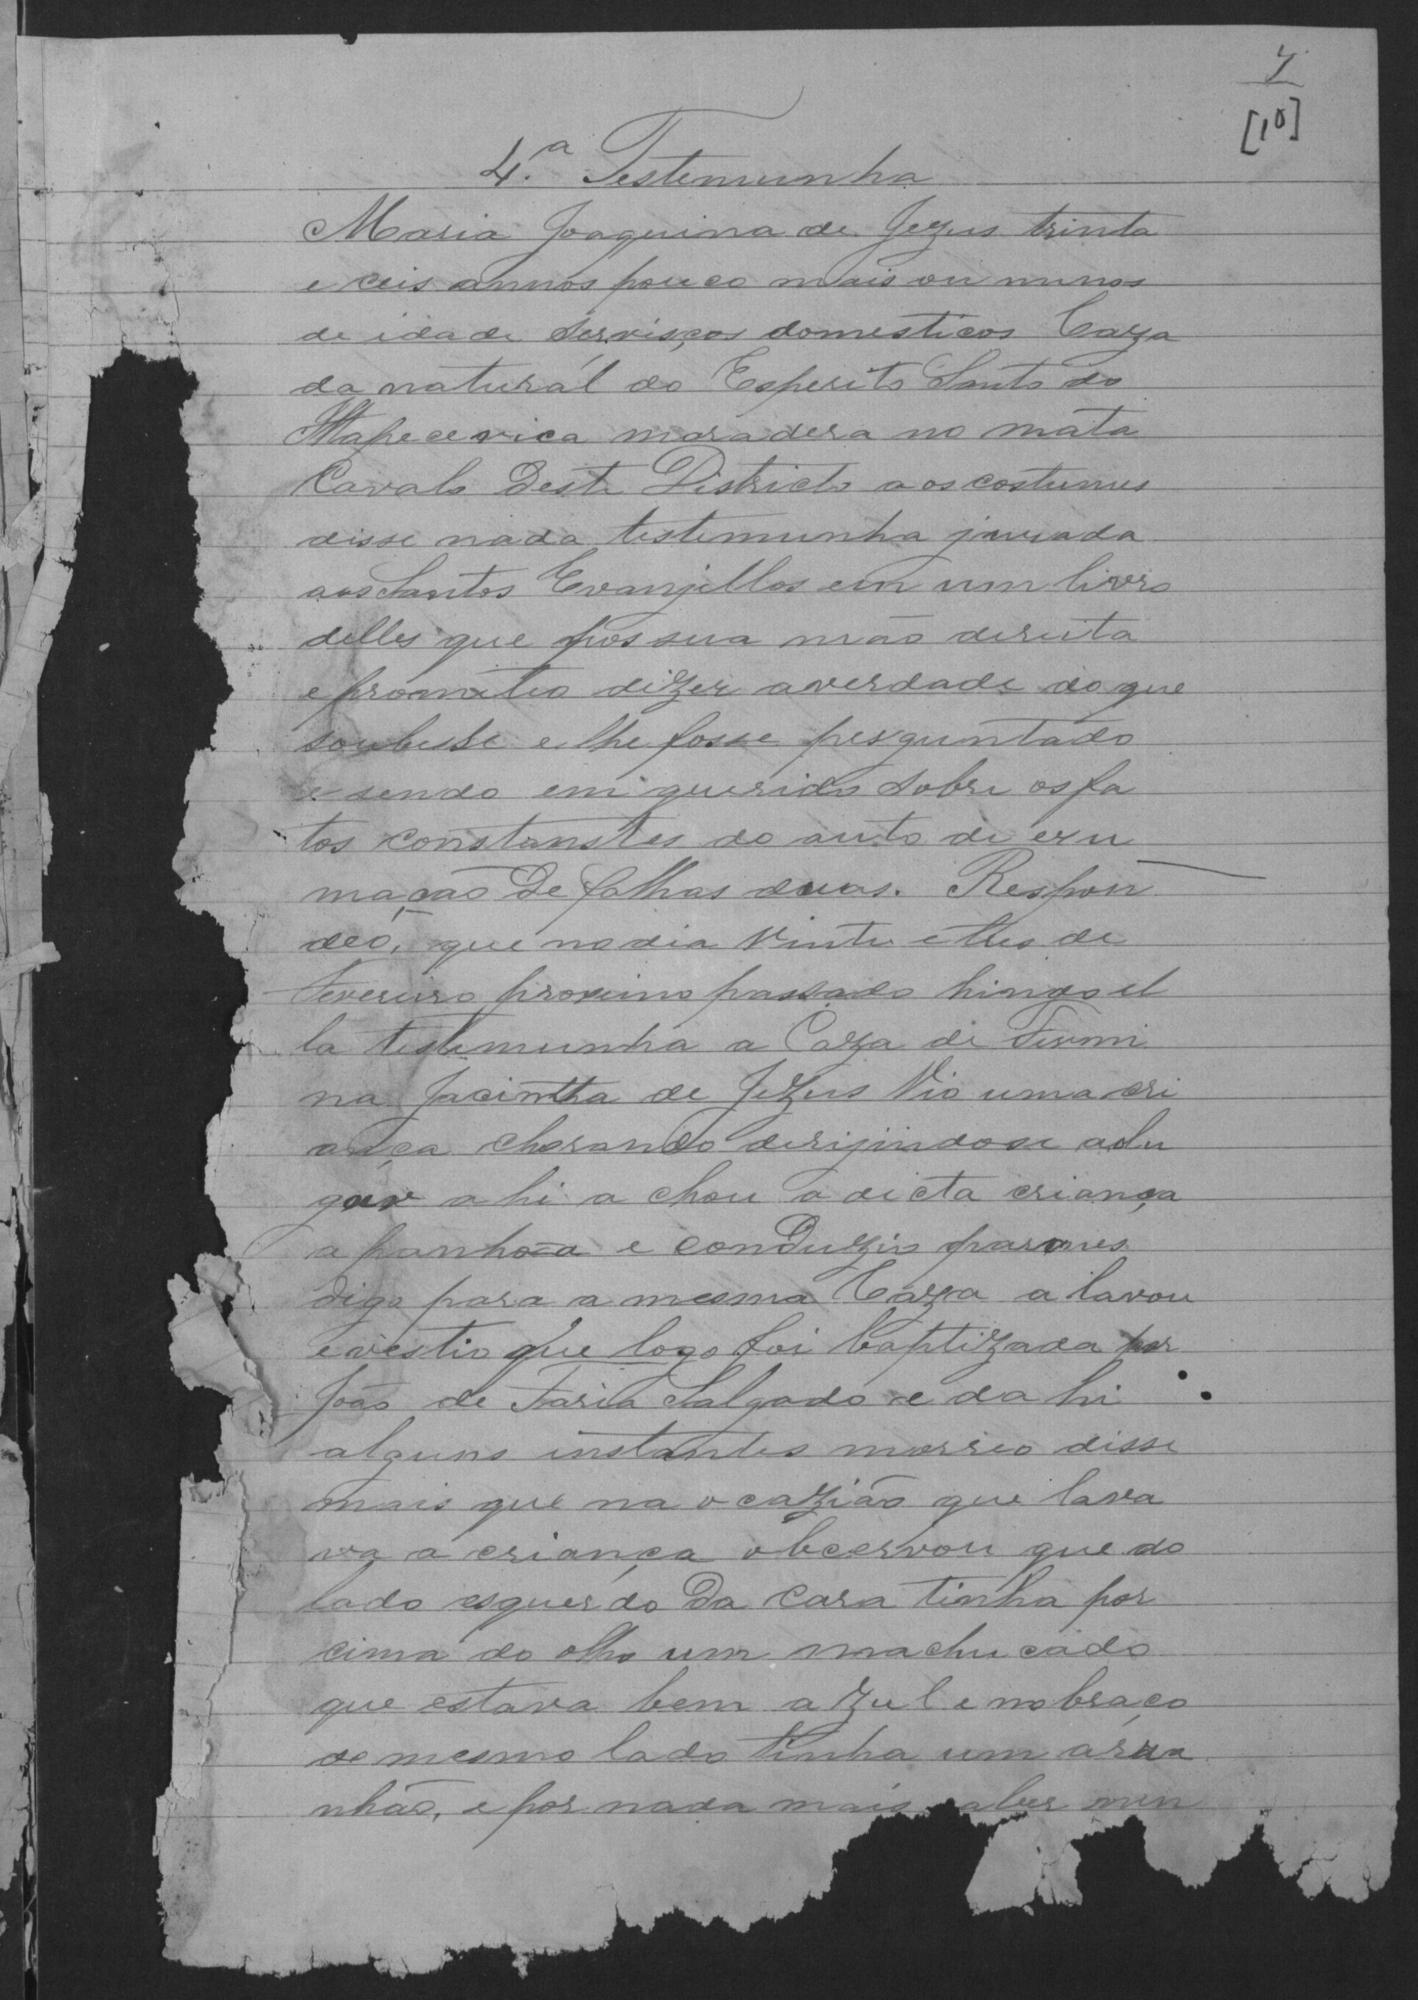 7
[10]
4.ª Testemunha
Maria Joaquina de Jezus trinta
e ceis annos pouco mais ou menos
de idade Servisços domesticos Caza
da naturál do Esperito Santo do
Itapecerica moradera no mata
Cavalo deste Districto aos costumes
disse nada testemunha jurada
aos Santos Evanjellos em um livro
delles que pos sua mão direita
e prometeo dizer a verdade do que
soubesse e lhe fosse perguntado
e sendo enquerida sobre os fa
tos constanstes do auto de exu
mação de folhas duas. Respon
deo, que no dia vinte e tres de
Fevereiro proximo passado hindo el
la testemunha a Caza de Firmi
na Jacintha de Jezus Vio uma cri
ança chorando derijindose ao lu
gar ahi achou a dicta criança
apanhoa e conduzio para mes
digo para a mesma Caza a lavou
e vestio que logo foi baptizada por
João de Faria Salgado e da hi
alguns instantes morreo disse
mais que na ocazião que lava
va a criança obcervou que do
lado esquerdo da cara tinha por
cima do olho um machucado
que estava bem azul e no braço
do mesmo lado tinha um arra
nhão, e por nada mais saber nem